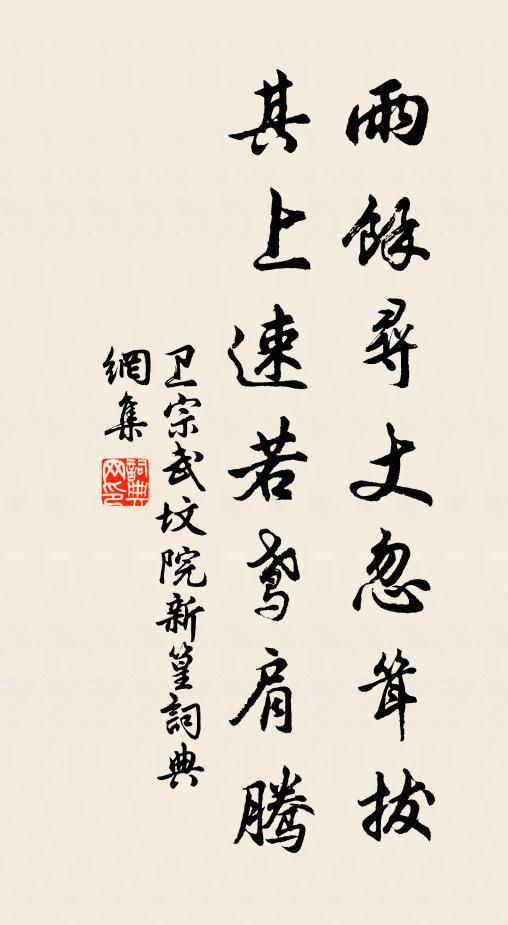 雨餘尋丈忽聳拔
其上速若鸢肩騰
卫宗武坟院新篁詞典
網集
詞典网印